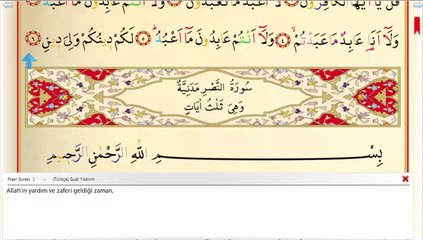 قُلْ يَٓا اَيُّهَا الْكَافِرُونَۙ ﴿١﴾ لَٓا اَعْبُدُ مَا تَعْبُدُونَۙ
وَلَٓا اَنَا۬ عَابِدٌ مَا عَبَدْتُمْۙ ﴿٤﴾ وَلَٓا اَنْتُمْ عَابِدُونَ مَٓا اَعْبُدُۜ ﴿٥﴾ لَكُمْ د۪ينُكُمْ وَلِيَ د۪ينِ ﴿٦﴾
سُورَةُ النَّصْرِ مَدَنِيَّةٌ
وَهِيَ ثَلٰثُ اٰيَاتٍ
بِسْمِ اللّٰهِ الرَّحْمٰنِ الرَّح۪يمِ
Nasr Suresi 1 -- (Türkçe) Suat Yıldırım
Allah'ın yardım ve zaferi geldiği zaman,